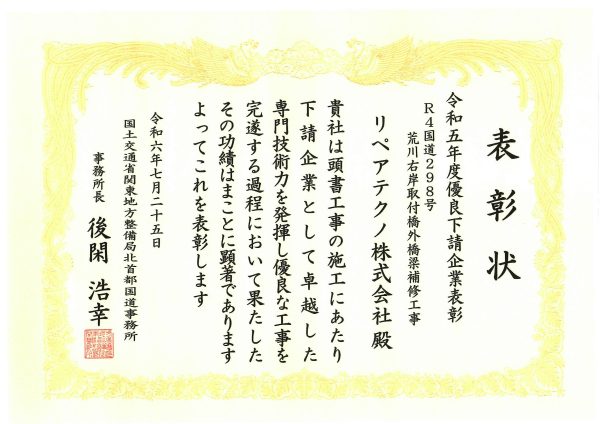 表彰状
令和五年度優良下請企業表彰
R4国道298号
荒川右岸取付橋外橋梁補修工事
リペアテクノ株式会社殿
貴社は頭書工事の施工にあたり
下請企業として卓越した
専門技術力を発揮し優良な工事を
完遂する過程において果たした
その功績はまことに顕著であります
よってこれを表彰します
令和六年七月二十五日
国土交通省関東地方整備局北首都国道事務所
事務所長 後閑浩幸